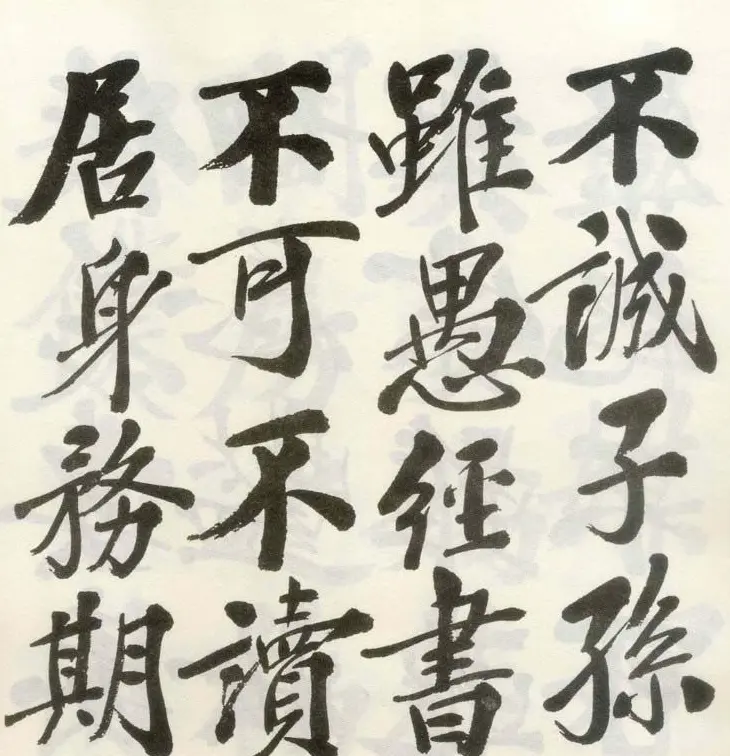 不誠子孫
雖愚經書
不可不讀
居身務期